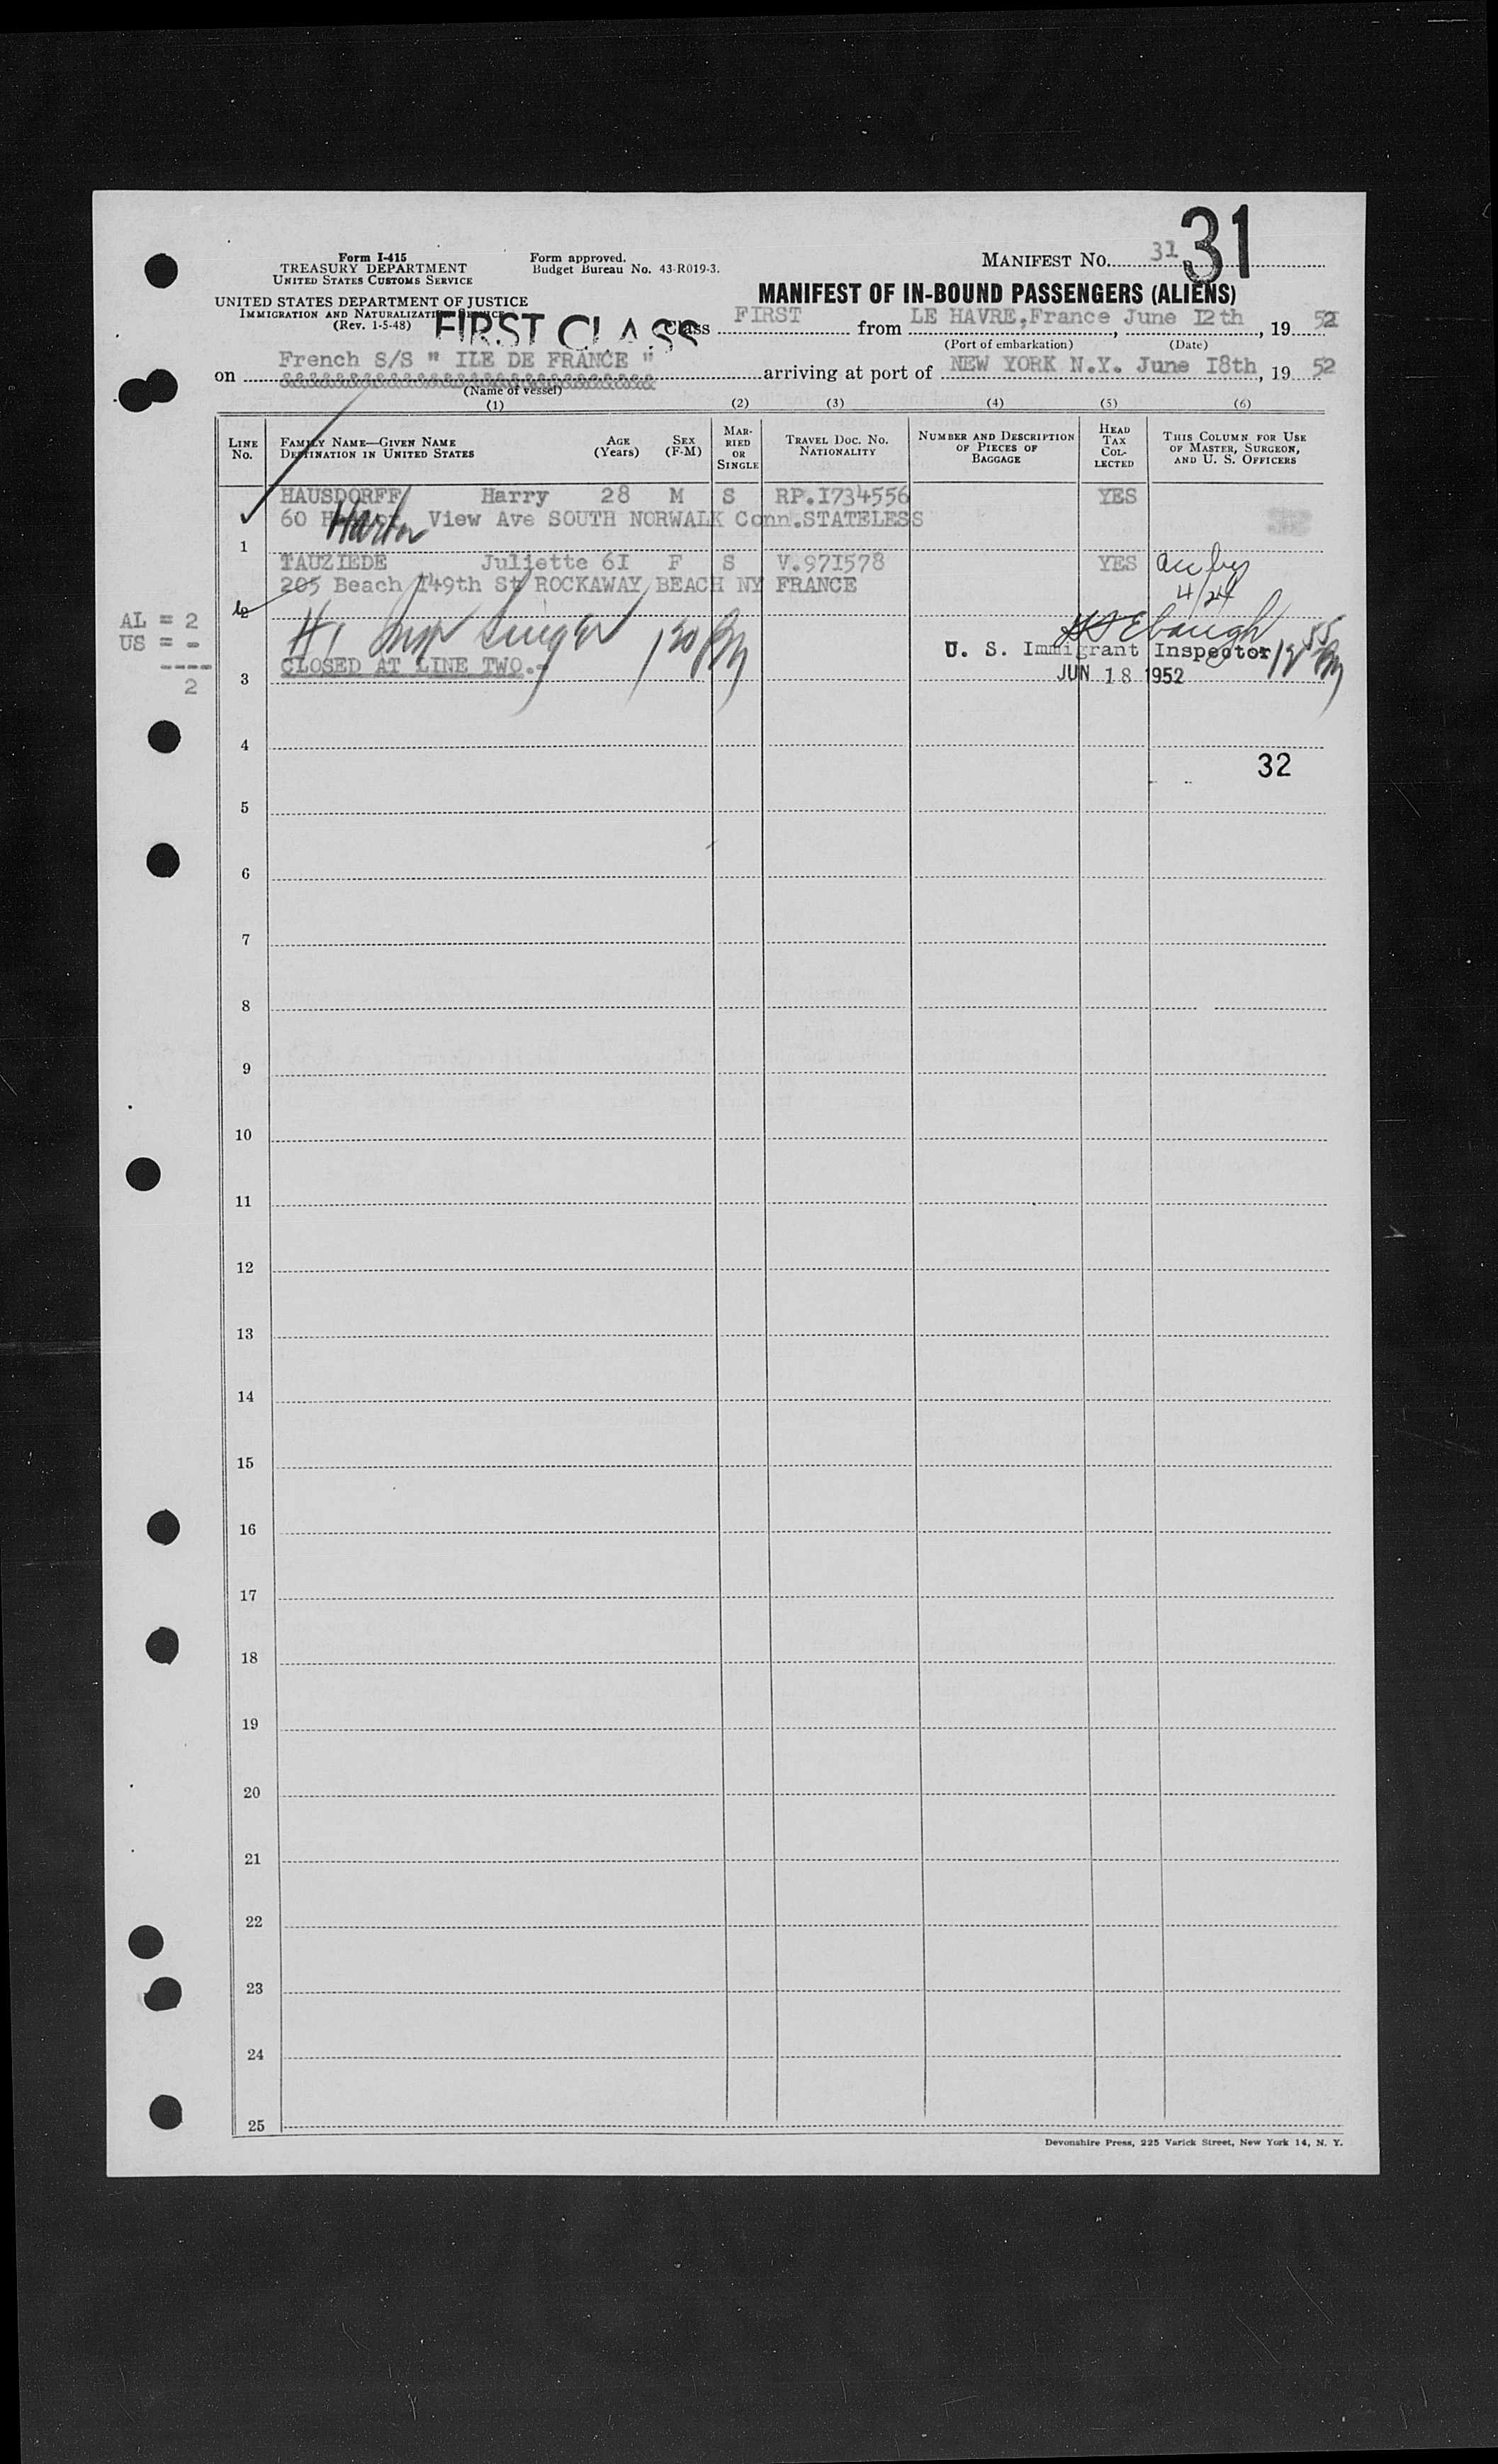 31
Form I-415
TREASURY DEPARTMENT
UNITED STATES CUSTOMS SERVICE
Form approved.
Budget Bureau No. 43-R019-3.
MANIFEST NO. 31
UNITED STATES DEPARTMENT OF JUSTICE
IMMIGRATION AND NATURALIZATION SERVICE
(Rev. 1-5-48)
MANIFEST OF IN-BOUND PASSENGERS (ALIENS)
FIRST CLASS
Class FIRST from LE HAVRE,France, June I2th, 19 52
(Port of embarkation) (Date)
on French S/S " ILE DE FRANCE " arriving at port of NEW YORK N.Y. June I8th, 19 52
(Name of vessel)
(1) (2) (3) (4) (5) (6)
LINE No.
FAMILY NAME—GIVEN NAME
DESTINATION IN UNITED STATES
AGE (Years)
SEX (F-M)
MARRIED OR SINGLE
TRAVEL DOC. NO. NATIONALITY
NUMBER AND DESCRIPTION OF PIECES OF BAGGAGE
HEAD TAX COLLECTED
THIS COLUMN FOR USE OF MASTER, SURGEON, AND U. S. OFFICERS
HAUSDORFF Harry 28 M S RP.I734556 YES
60 Harbor View Ave SOUTH NORWALK Conn.STATELESS
1
TAUZIEDE Juliette 6I F S V.97I578 YES
205 Beach I49th St ROCKAWAY BEACH NY FRANCE
4/24
2
AL = 2
US = -
----
2
#1
HS Ebaugh
U. S. Immigrant Inspector
CLOSED AT LINE TWO.-
JUN 18 1952
3
4
32
5
6
7
8
9
10
11
12
13
14
15
16
17
18
19
20
21
22
23
24
25
Devonshire Press, 225 Varick Street, New York 14, N. Y.